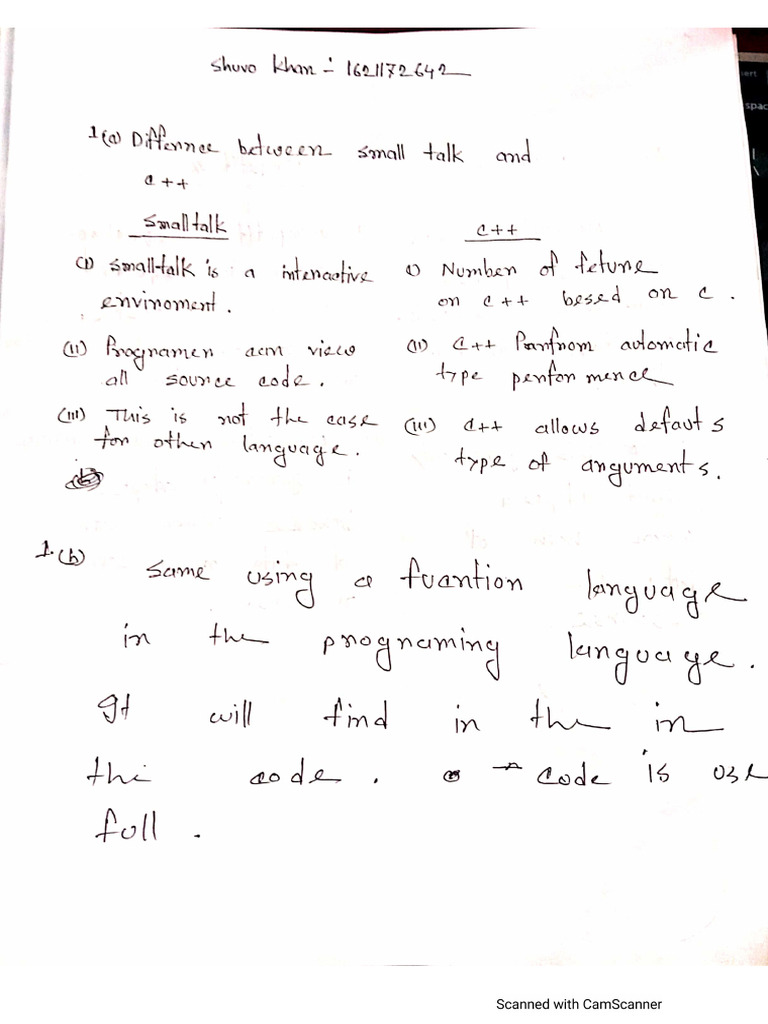 Shuvo Khan :- 1621172642
1(a) Differnce between small talk and
c++
Smalltalk
c++
(i) Small-talk is a interactive
enviroment.
i) Number of feture
on c++ besed on c.
(ii) Programer acm view
all source code.
(ii) c++ Parfrom automatic
type performence
(iii) This is not the case
for other language.
(iii) c++ allows defauts
type of arguments.
1.(b)
Same using a fuantion language
in the programing language.
It will find in the in
thi code. code is use
full.
ert
spac
Scanned with CamScanner